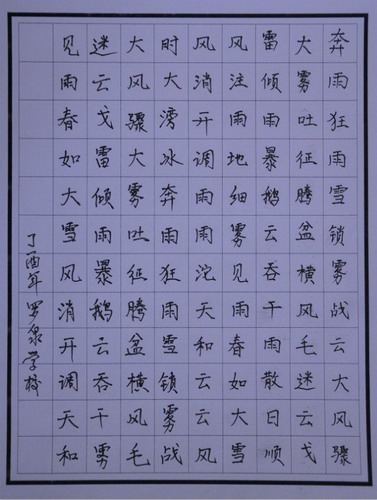 奔雨狂雨雪锁雾战云大风骤
大雾吐征腾盆横风毛迷云戈
雷倾雨暴鹅云吞干雨散日顺
风注雨地细雾见雨春如大雪
风消开调雨雨沱天和云云风
时大滂冰奔雨狂雨雪锁雾战
大风骤大雾吐征腾盆横风毛
迷云戈雷倾雨暴鹅云吞干雾
见雨春如大雪风消开调天和
丁酉年罗泉学校